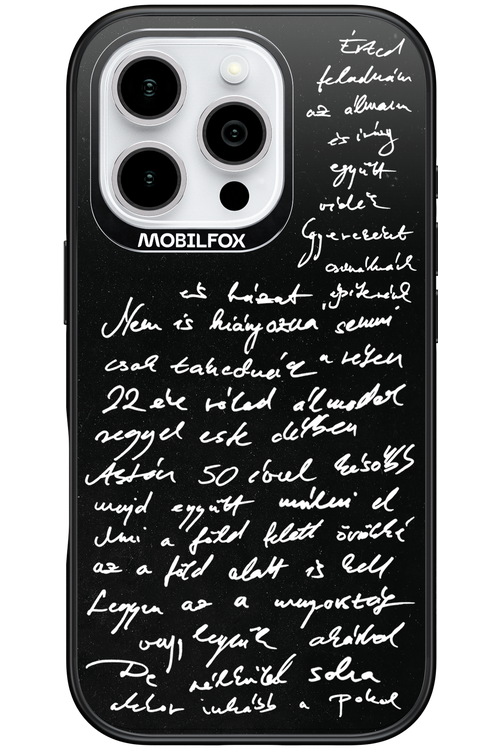 Érted
feladnám
az álmaim
és így
együtt
Gyereket
csinálnánk
és házat építenénk
Nem is hiányozna semmi
csak
22 éve rólad álmodok
reggel este délben
Aztán 50 évvel később
majd együtt múlni el
Ami a föld felett örökké
az a föld alatt is kell
Legyen az a mennyország
vagy legyünk akárhol
De nélküled soha
akkor inkább a pokol
MOBILFOX